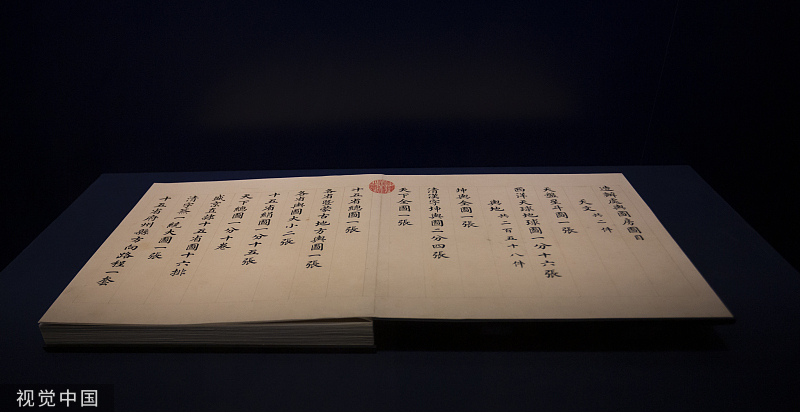 造辦處輿圖房圖目
天文共二件
天盤星斗圖一張
西洋天球地球圖一分十六張
輿地共二百五十八件
坤輿全圖一張
清漢字坤輿圖二分四張
天下全圖一張
十五省總圖一張
各省暨蒙古地方輿圖一張
各省輿圖大小二張
十五省絹圖一分十五張
天下總圖一分十卷
盛京直隸十五省圖十六排
清字菜一統大圖一張
十五省府州縣方向路程一套
视觉中国